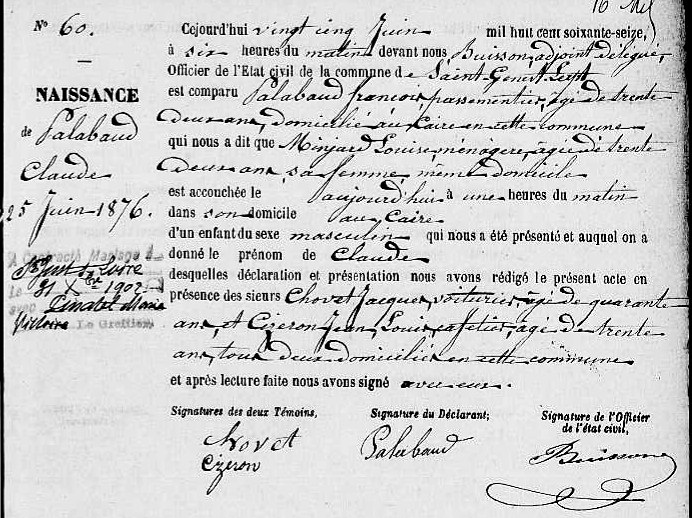 N° 60.
NAISSANCE
de Palabaud
Claude
25 Juin 1876.
A Contracté Mariage à
St Just sr Loire
le 31 Xbre 1902
avec Linatel Marie
Victoire
Le Greffier,
Cejourd'hui vingt cinq Juin mil huit cent soixante-seize,
à six heures du matin devant nous, Buisson, adjoint délégué,
Officier de l'Etat civil de la commune de Saint-Genest-Lerpt
est comparu Palabaud françois, passementier, âgé de trente
deux ans, domicilié au Caire en cette commune
qui nous a dit que Minjard Louise, ménagère, âgée de trente
deux ans, sa femme, même domicile
est accouchée le aujourd'hui à une heures du matin
dans son domicile au Caire
d'un enfant du sexe masculin qui nous a été présenté et auquel on a
donné le prénom de Claude
desquelles déclaration et présentation nous avons rédigé le présent acte en
présence des sieurs Chovet Jacques, voiturier, âgé de quarante
ans, et Cizeron Jean, Louis, cafetier, âgé de trente
ans, tous deux domiciliés en cette commune
et après lecture faite nous avons signé avec eux.
Signatures des deux Témoins,
Chovet
Cizeron
Signature du Déclarant;
Palabaud
Signature de l'Officier
de l'état civil,
Buisson